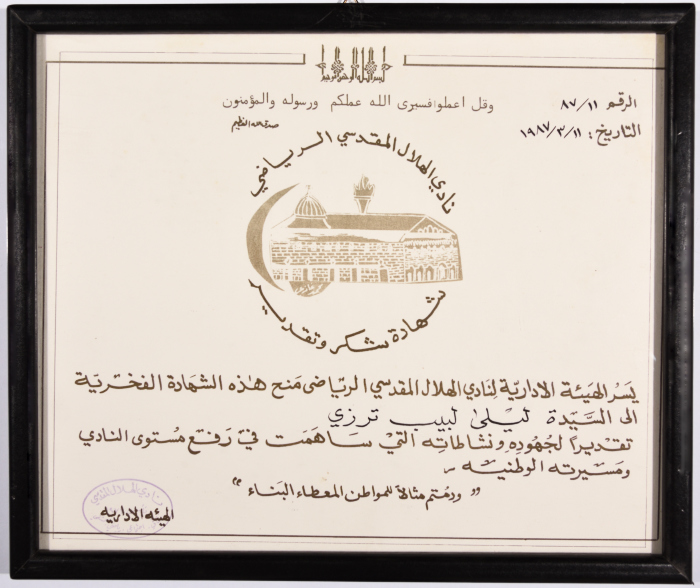 بسم الله الرحمن الرحيم
وقل اعملوا فسيرى الله عملكم ورسوله والمؤمنون
صدق الله العظيم
الرقم ٨٧/١١
التاريخ: ١٩٨٧/٣/١١
نادي الهلال المقدسي الرياضي
شهادة شكر وتقدير
يسر الهيئة الادارية لنادي الهلال المقدسي الرياضي منح هذه الشهادة الفخرية
الى السيدة ليلى لبيب ترزي
تقديراً لجهوده ونشاطاته التي ساهمت في رفع مستوى النادي
ومسيرته الوطنيه
"ودمتم مثالاً للمواطن المعطاء البناء"
الهيئه الاداريه
نادي الهلال المقدسي